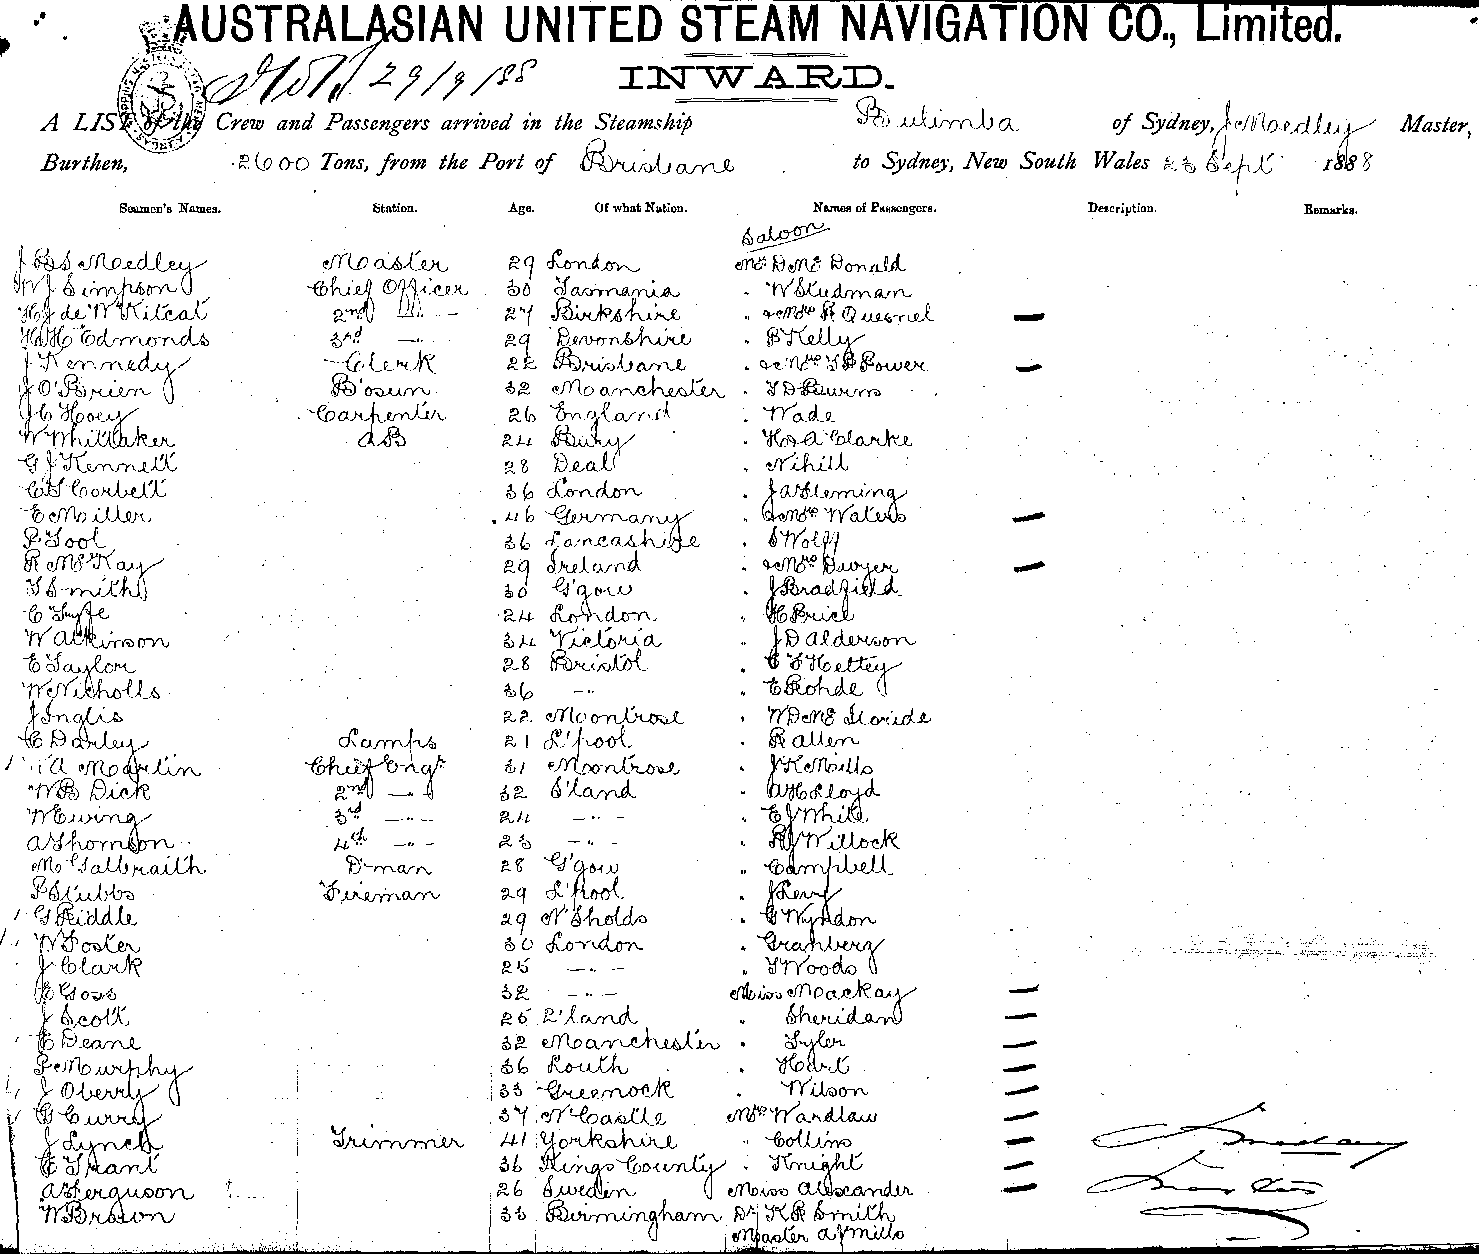 AUSTRALASIAN UNITED STEAM NAVIGATION CO., Limited.
29/9/88 INWARD.
A LIST of the Crew and Passengers arrived in the Steamship Bulimba of Sydney, J Medley Master,
Burthen, 2600 Tons, from the Port of Brisbane to Sydney, New South Wales 23 Sept 1888
Seamen's Names. Station. Age. Of what Nation. Names of Passengers. Description. Remarks.
Saloon
J B S Medley Master 29 London Mr D Mc Donald
W J Simpson Chief Officer 30 Tasmania " W Studman
H J de W Kitcat 2nd " - 27 Birkshire " & Mrs R Quesnel —
H H Edmonds 3rd -"- 29 Devonshire " P Kelly
J Kennedy Clerk 22 Brisbane " & Mrs T P Power —
J O'Brien B'osun 32 Manchester " T D Burns
J C Hoey Carpenter 26 England " Wade
W Whittaker AB 24 Bury " H & A Clarke
G J Kennett 28 Deal " Nihill
C S Corbett 36 London " J A Fleming
E Miller 46 Germany " & Mrs Waters —
P Tool 36 Lancashire " S Wolff
R McKay 29 Ireland " & Mrs Dwyer —
T Smith 30 G'gow " J Bradfield
C Fyffe 24 London " H Price
W Atkinson 34 Victoria " J D Alderson
E Taylor 28 Bristol " C F Hettey
W Nicholls 36 -"- " E Rohde
J Inglis 22 Montrose " W D Mc
C Darley Lamps 21 L'pool " R Allen
A Martin Chief Engr 31 Montrose " J K Mills
W B Dick 2nd -"- 32 S'land " A H Lloyd
W Ewing 3rd -"- 24 -"- " E J White
A Thomson 4th -"- 23 -"- " R J Willock
M Galbraith D'man 28 G'gow " Campbell
P Stubbs Fireman 29 L'pool " J Levy
G Riddle 29 N'Sholds " G Wyndon
W Foster 30 London " Granberg
J Clark 25 -"- " T Woods
E Goss 32 -"- Miss Mackay —
J Scott 25 S'land " Sheridan —
E Deane 32 Manchester " Tyler —
P Murphy 36 Louth " Hart —
J Oberry 33 Greenock " Wilson —
G Curry 37 N'Castle Mrs Wardlaw —
J Lynch Trimmer 41 Yorkshire " Collins —
E Grant 36 Kings County " Knight —
A Ferguson 26 Sweden Miss Alexander —
W Brown 33 Birmingham Dr K R Smith
Master A J Mills